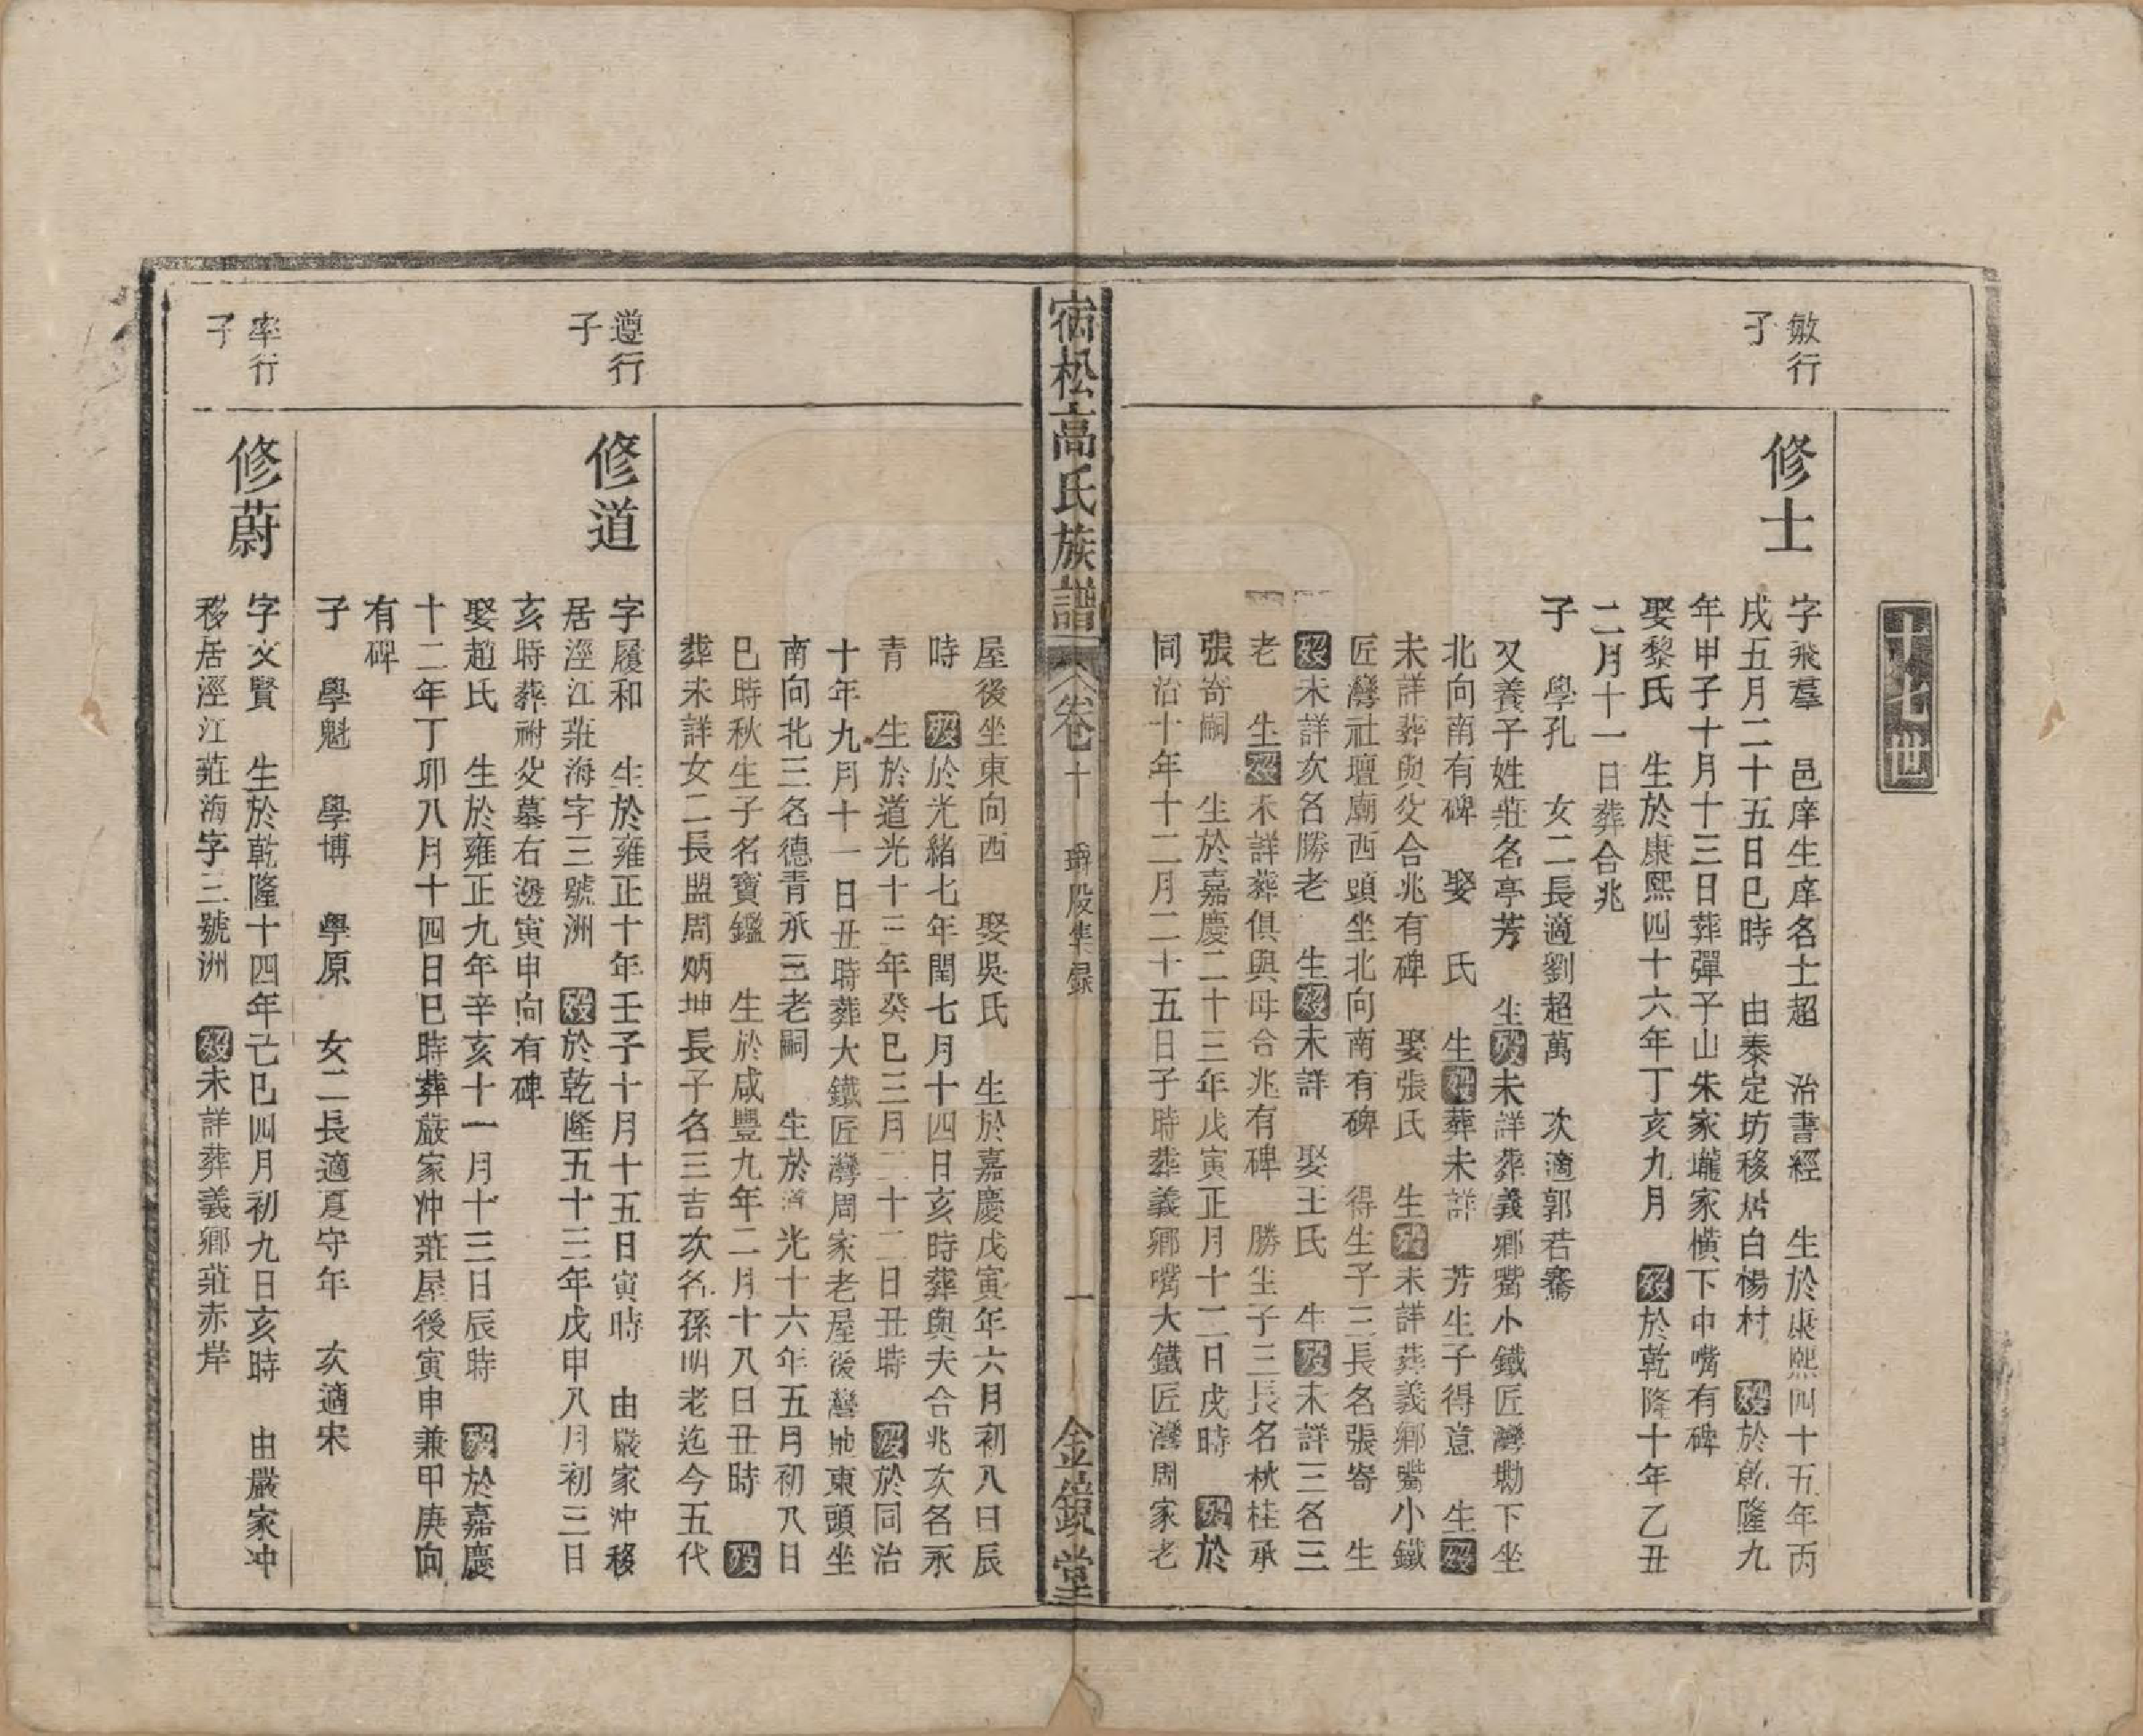 十七世
敏行
子
修士
字飛羣　邑庠生庠名士超　治書經　生於康熙四十五年丙
戌五月二十五日巳時　由泰定坊移居白楊村　歿於乾隆九
年甲子十月十三日葬彈子山朱家壠家橫下中嘴有碑
娶黎氏　生於康熙四十六年丁亥九月　歿於乾隆十年乙丑
二月十一日葬合兆
子　學孔　女二長適劉超萬　次適郭若騫
又養子姓莊名亭芳　生歿未詳葬義鄉嘴小鐵匠灣墈下坐
北向南有碑　娶　氏　生歿葬未詳　芳生子得意　生歿
未詳葬與父合兆有碑　娶張氏　生歿未詳葬義鄉嘴小鐵
匠灣社壇廟西頭坐北向南有碑　得生子三長名張寄　生
歿未詳次名勝老　生歿未詳　娶王氏　生歿未詳三名三
老　生歿未詳葬俱與母合兆有碑　勝生子三長名秋桂承
張寄嗣　生於嘉慶二十三年戊寅正月十二日戌時　歿於
同治十年十二月二十五日子時葬義鄉嘴大鐵匠灣周家老
宿松高氏族譜
卷十　　股集錄
一
金鏡堂
屋後坐東向西　娶吳氏　生於嘉慶戊寅年六月初八日辰
時　歿於光緒七年閏七月十四日亥時葬與夫合兆次名永
青　生於道光十三年癸巳三月二十二日丑時　歿於同治
十年九月十一日丑時葬大鐵匠灣周家老屋後灣地東頭坐
南向北三名德青承三老嗣　生於道光十六年五月初八日
巳時秋生子名寶鑑　生於咸豐九年二月十八日丑時　歿
葬未詳女二長盟周炳坤長子名三吉次名孫明老迄今五代
遵行
子
修道
字履和　生於雍正十年壬子十月十五日寅時　由嚴家沖移
居涇江莊海字三號洲　歿於乾隆五十三年戊申八月初三日
亥時葬祔父墓右邊寅申向有碑
娶趙氏　生於雍正九年辛亥十一月十三日辰時　歿於嘉慶
十二年丁卯八月十四日巳時葬嚴家沖莊屋後寅申兼甲庚向
有碑
子　學魁　學博　學原　女二長適夏守年　次適宋
率行
子
修蔚
字文賢　生於乾隆十四年己巳四月初九日亥時　由嚴家沖
移居涇江莊海字三號洲　歿未詳葬義鄉莊赤岸